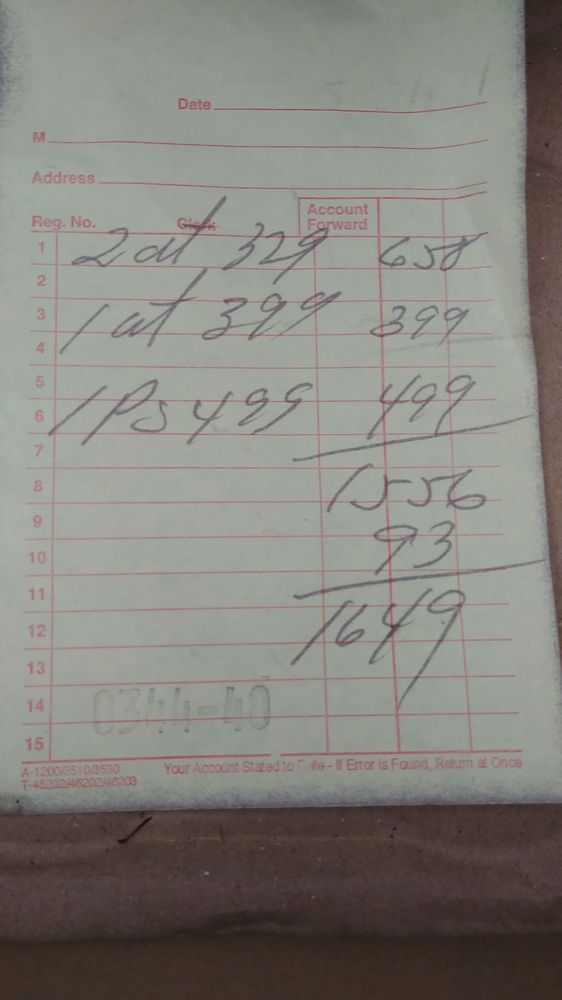 Date
M
Address
Reg. No. Clerk Account Forward
1 2 at 329 658
2
3 1 at 399 399
4
5
6 1 Ps 499 499
7
8 1556
9
10 93
11
12 1649
13
14 0344-40
15
A-1200/3510/3530 Your Account Stated to Date - If Error is Found, Return at Once
T-45202/46202/46203